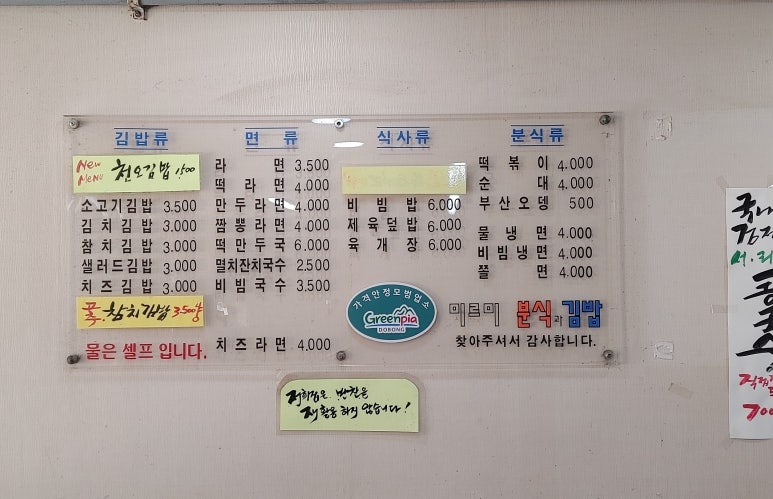 김밥류
New Menu 천오김밥 1500
소고기김밥 3.500
김치김밥 3.000
참치김밥 3.000
샐러드김밥 3.000
치즈김밥 3.000
참치김밥 3.500
물은 셀프 입니다.
면류
라면 3.500
떡라면 4.000
만두라면 4.000
짬뽕라면 4.000
떡만두국 6.000
멸치잔치국수 2.500
비빔국수 3.500
치즈라면 4.000
식사류
비빔밥 6.000
제육덮밥 6.000
육개장 6.000
분식류
떡볶이 4.000
순대 4.000
부산오뎅 500
물냉면 4.000
비빔냉면 4.000
쫄면 4.000
가격안정모범업소
Greenpia
DOBONG
미르미 분식과 김밥
찾아주셔서 감사합니다.
저희집은 반찬을
재활용 하지 않습니다!